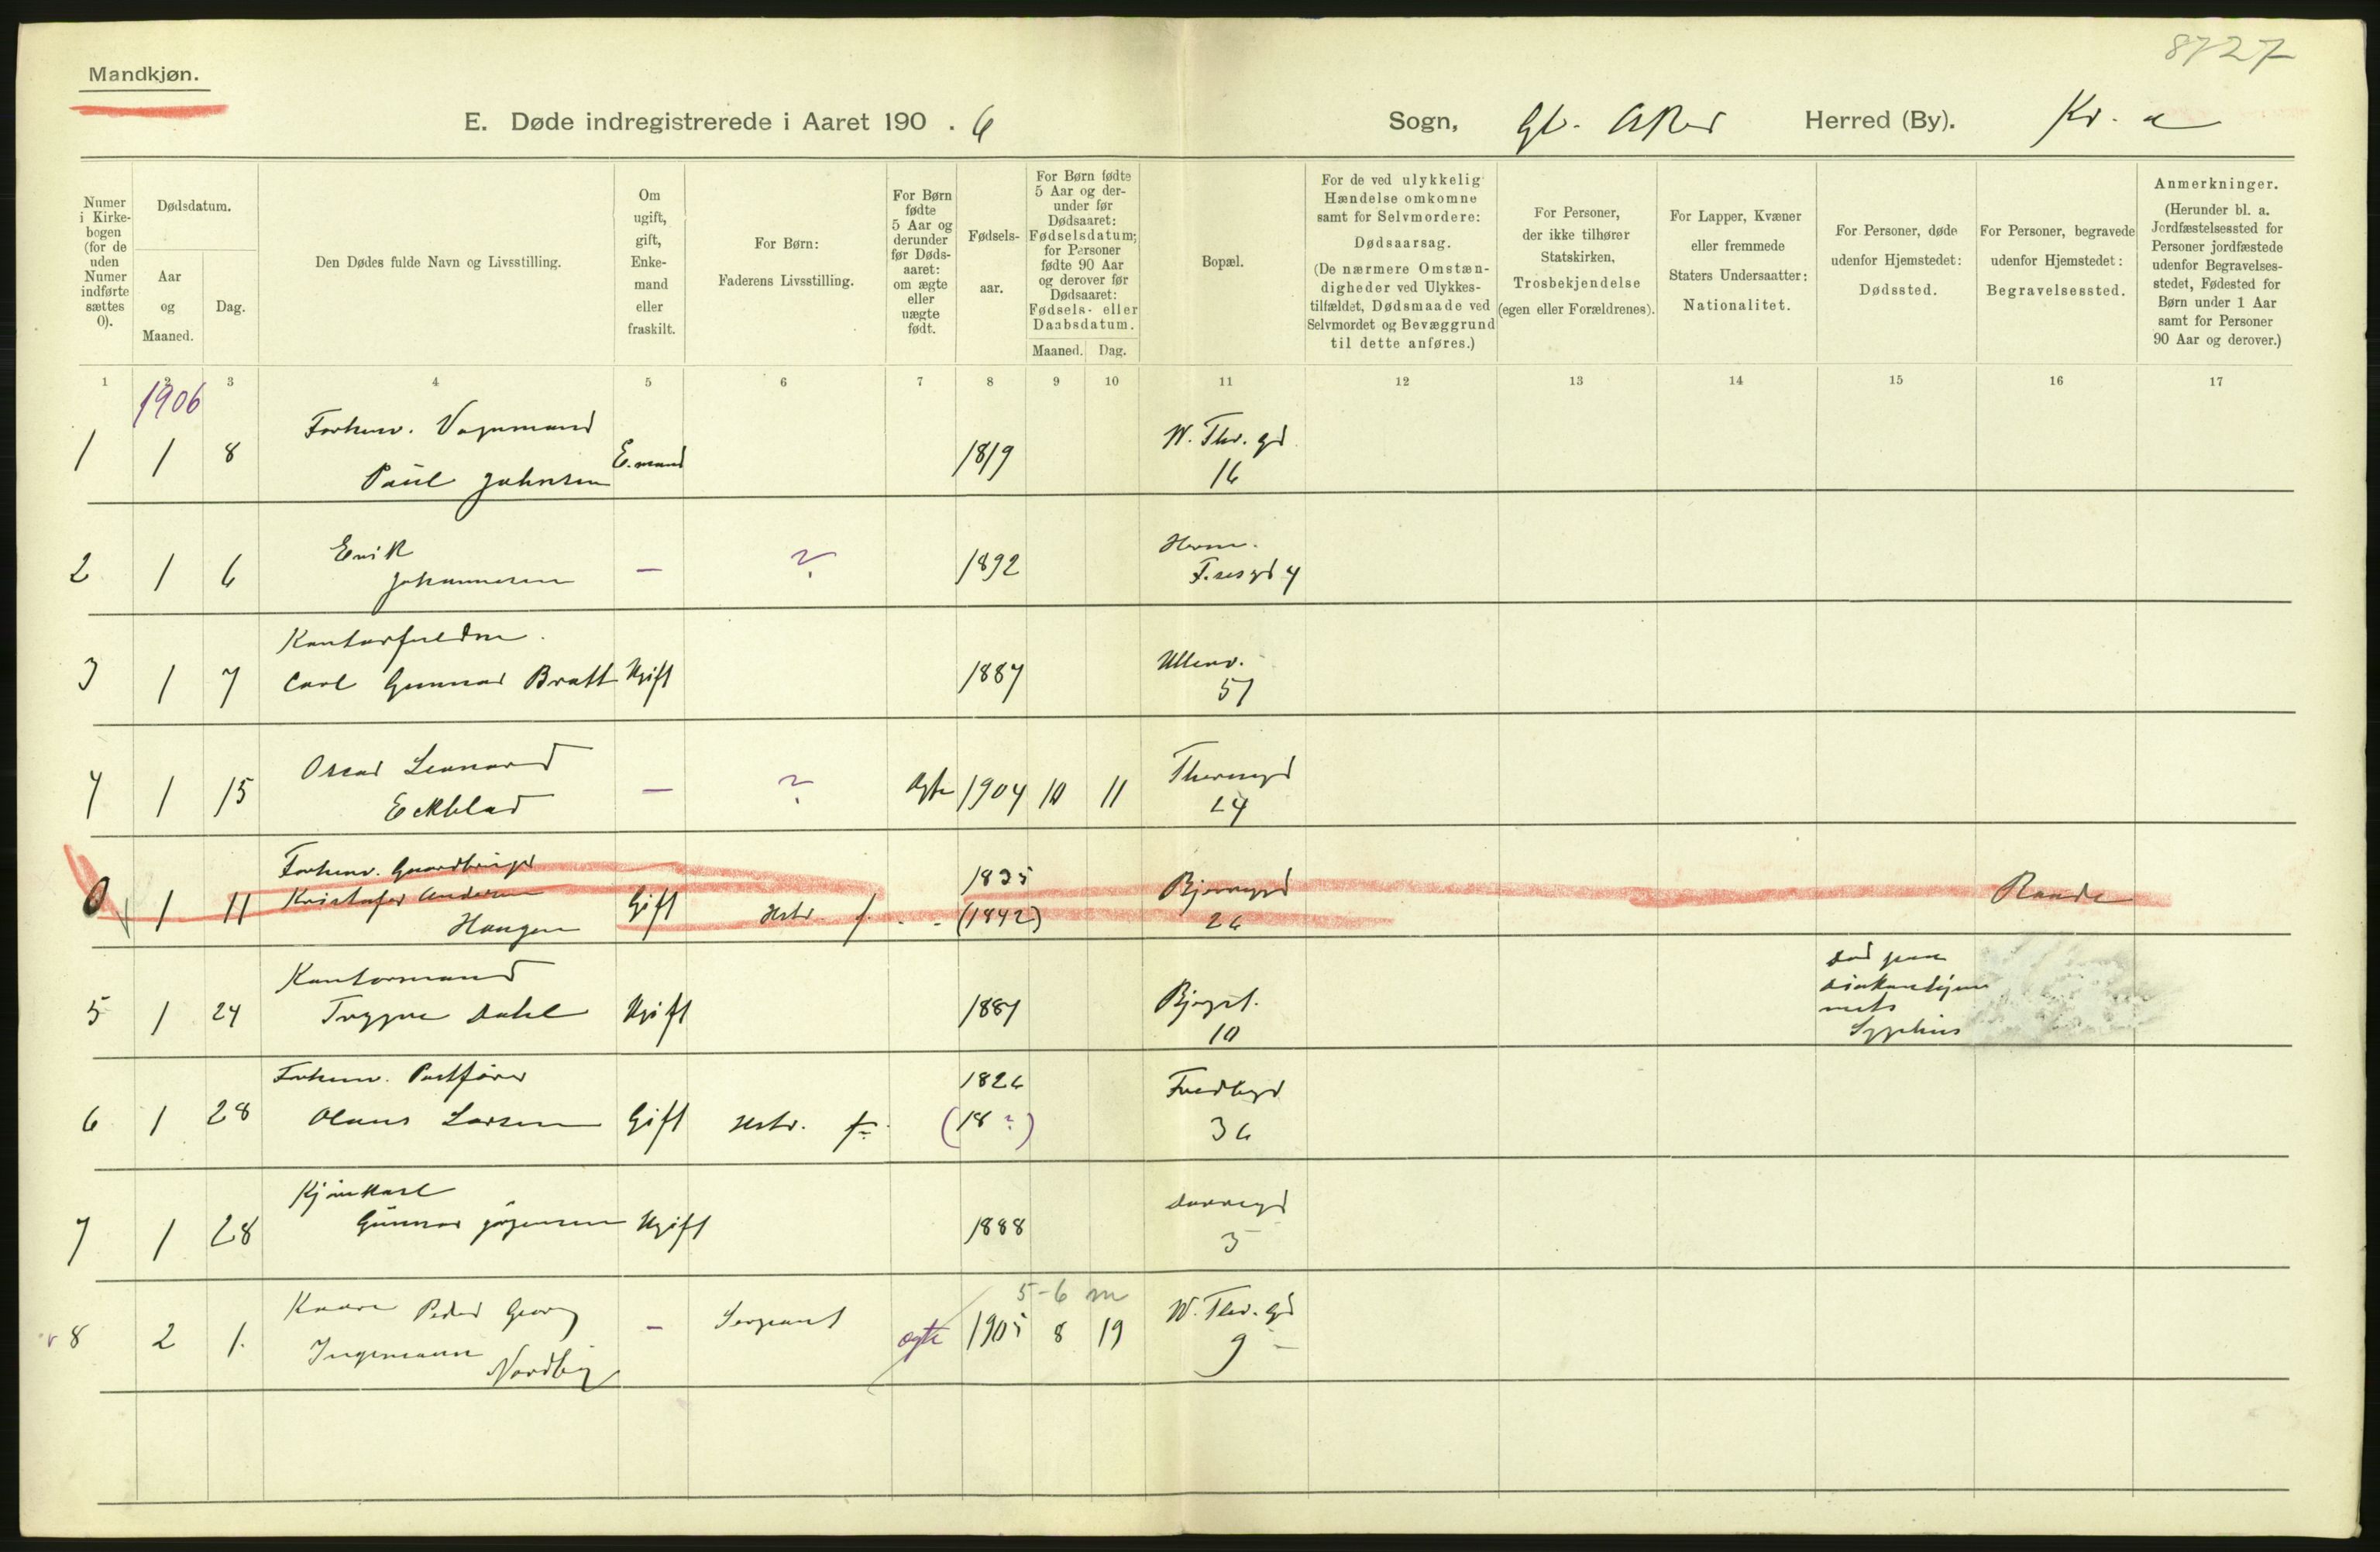 8727
Mandkjøn.
E. Døde indregistrerede i Aaret 190 . 6 Sogn, Gl. Aker Herred (By). Kr. a
Numer
i Kirke-
bogen
(for de
uden
Numer
indførte
sættes
0).
Dødsdatum.
Aar
og
Maaned.
Dag.
Den Dødes fulde Navn og Livsstilling.
Om
ugift,
gift,
Enke-
mand
eller
fraskilt.
For Børn:
Faderens Livsstilling.
For Børn
fødte
5 Aar og
derunder
før Døds-
aaret:
om ægte
eller
uægte
født.
Fødsels-
aar.
For Børn fødte
5 Aar og der-
under før
Dødsaaret:
Fødselsdatum;
for Personer
fødte 90 Aar
og derover før
Dødsaaret:
Fødsels- eller
Daabsdatum.
Maaned. Dag.
Bopæl.
For de ved ulykkelig
Hændelse omkomne
samt for Selvmordere:
Dødsaarsag.
(De nærmere Omstæn-
digheder ved Ulykkes-
tilfældet, Dødsmaade ved
Selvmordet og Bevæggrund
til dette anføres.)
For Personer,
der ikke tilhører
Statskirken,
Trosbekjendelse
(egen eller Forældrenes).
For Lapper, Kvæner
eller fremmede
Staters Undersaatter:
Nationalitet.
For Personer, døde
udenfor Hjemstedet:
Dødssted.
For Personer, begravede
udenfor Hjemstedet:
Begravelsessted.
Anmerkninger.
(Herunder bl. a.
Jordfæstelsessted for
Personer jordfæstede
udenfor Begravelses-
stedet, Fødested for
Børn under 1 Aar
samt for Personer
90 Aar og derover.)
1 2 3 4 5 6 7 8 9 10 11 12 13 14 15 16 17
1906
Forhenv. Vognmand
1 1 8 Paul Johnsen E.mand 1819 W. Thr. gd
16
2 1 6 Erik
Johannesen — ? 1892 Herm.
F.sesgd 4
Kontorfuldm.
3 1 7 Carl Gunnar Bratt Ugift 1887 Ullenv.
57
4 1 15 Oscar Leonard
Eckblad — ? ægte 1904 10 11 Theresgd
24
Forhenv. Gaardbruger
0 1 11 Kristofer Andersen
Haugen Gift Hstr. f. 1835
(1842) Bjerregd
26 Raade
Kontormand
5 1 24 Trygve Dahl Ugift 1887 Bjergst.
10 død paa
Diakonhjem
mets
Sygehus
Forhenv. Postfører
6 1 28 Olaus Larsen Gift Hstr. f. 1826
(18 ?) Fredbgd
36
7 1 28 Gunnar Jørgensen Ugift 1888 Darregd
5-6 m
8 2 1. Kaare Peder Georg
Ingemann
Nordby — Sergeant ægte 1905 8 19 W. Thr. gd
9